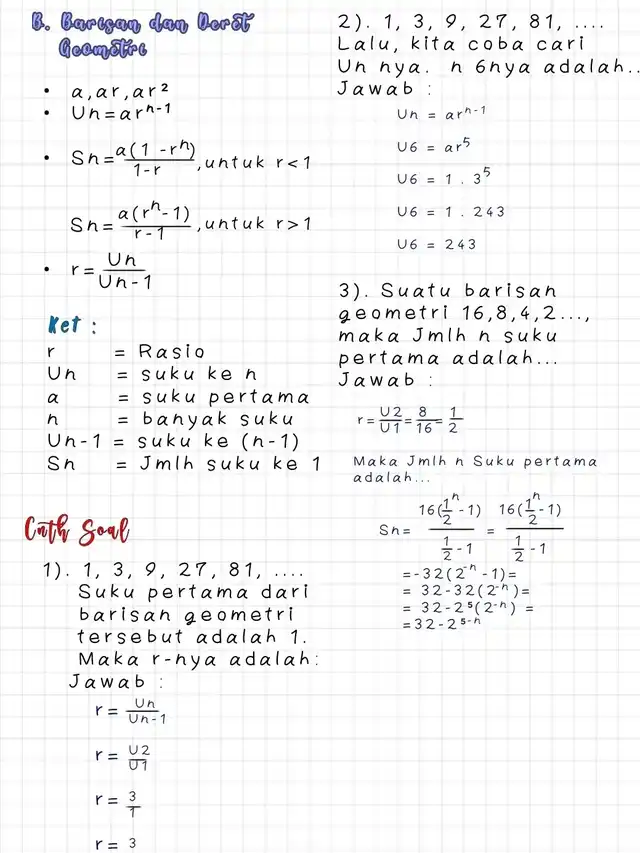 B. Barisan dan Deret
Geometri
• a, ar, ar²
• Un = arⁿ⁻¹
• Sn = a(1 - rⁿ) / 1 - r , untuk r < 1
Sn = a(rⁿ - 1) / r - 1 , untuk r > 1
• r = Un / Un - 1
Ket :
r = Rasio
Un = suku ke n
a = suku pertama
n = banyak suku
Un-1 = suku ke (n-1)
Sn = Jmlh suku ke 1
Cnth Soal
1). 1, 3, 9, 27, 81, ....
Suku pertama dari
barisan geometri
tersebut adalah 1.
Maka r-nya adalah:
Jawab :
r = Un / Un - 1
r = U2 / U1
r = 3 / 1
r = 3
2). 1, 3, 9, 27, 81, ....
Lalu, kita coba cari
Un nya. n 6nya adalah..
Jawab :
Un = arⁿ⁻¹
U6 = ar⁵
U6 = 1 . 3⁵
U6 = 1 . 243
U6 = 243
3). Suatu barisan
geometri 16,8,4,2...,
maka Jmlh n suku
pertama adalah...
Jawab :
r = U2 / U1 = 8 / 16 = 1 / 2
Maka Jmlh n Suku pertama
adalah...
Sn = 16(1/2ⁿ - 1) / 1/2 - 1 = 16(1/2ⁿ - 1) / 1/2 - 1
= -32(2⁻ⁿ - 1) =
= 32 - 32(2⁻ⁿ) =
= 32 - 2⁵(2⁻ⁿ) =
= 32 - 2⁵⁻ⁿ